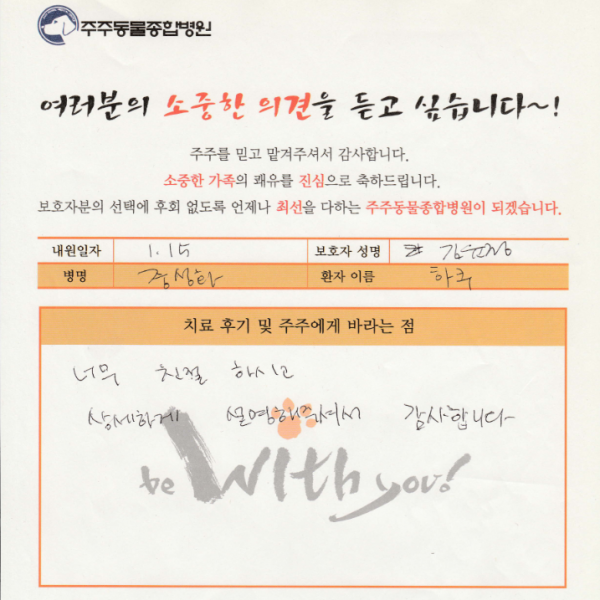 주주동물종합병원
여러분의 소중한 의견을 듣고 싶습니다~!
주주를 믿고 맡겨주셔서 감사합니다.
소중한 가족의 쾌유를 진심으로 축하드립니다.
보호자분의 선택에 후회 없도록 언제나 최선을 다하는 주주동물종합병원이 되겠습니다.
내원일자 1.15 보호자 성명
병명 중성화 환자 이름 하루
치료 후기 및 주주에게 바라는 점
너무 친절 하시고
상세하게 설명해주셔서 감사합니다
be With you!